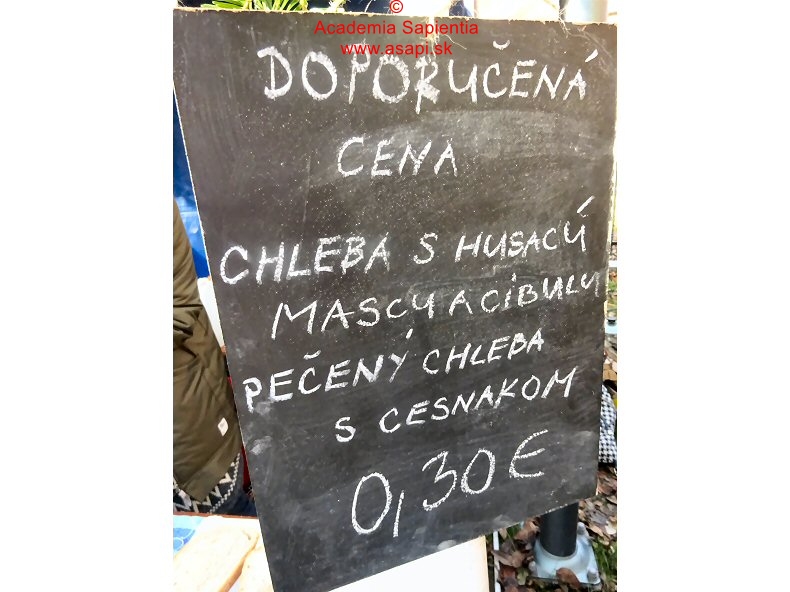 ©
Academia Sapientia
www.asapi.sk
DOPORUČENÁ
CENA
CHLEBA S HUSACÚ
MASCU A CIBULU
PEČENÝ CHLEBA
S CESNAKOM
0,30€